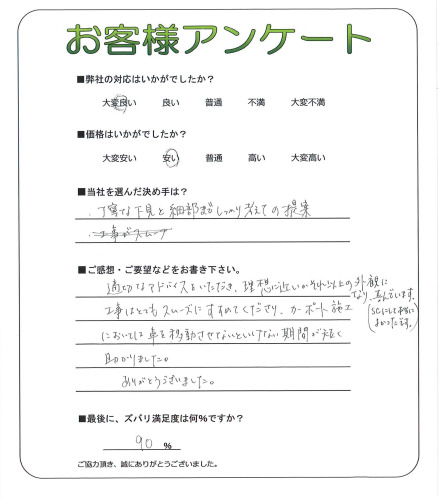 お客様アンケート
■弊社の対応はいかがでしたか?
大変良い 良い 普通 不満 大変不満
■価格はいかがでしたか?
大変安い 安い 普通 高い 大変高い
■当社を選んだ決め手は?
・丁寧な下見と細部までしっかり考えての提案
・工事がスムーズ
■ご感想・ご要望などをお書き下さい。
適切なアドバイスをいただき、理想に近いかそれ以上の外観に
なり、喜んでいます。
工事はとてもスムーズにすすめてくださり、カーポート施工
(SCにして本当に
よかったです。)
においては車を移動させないといけない期間が短く
助かりました。
ありがとうございました。
■最後に、ズバリ満足度は何%ですか?
90 %
ご協力頂き、誠にありがとうございました。